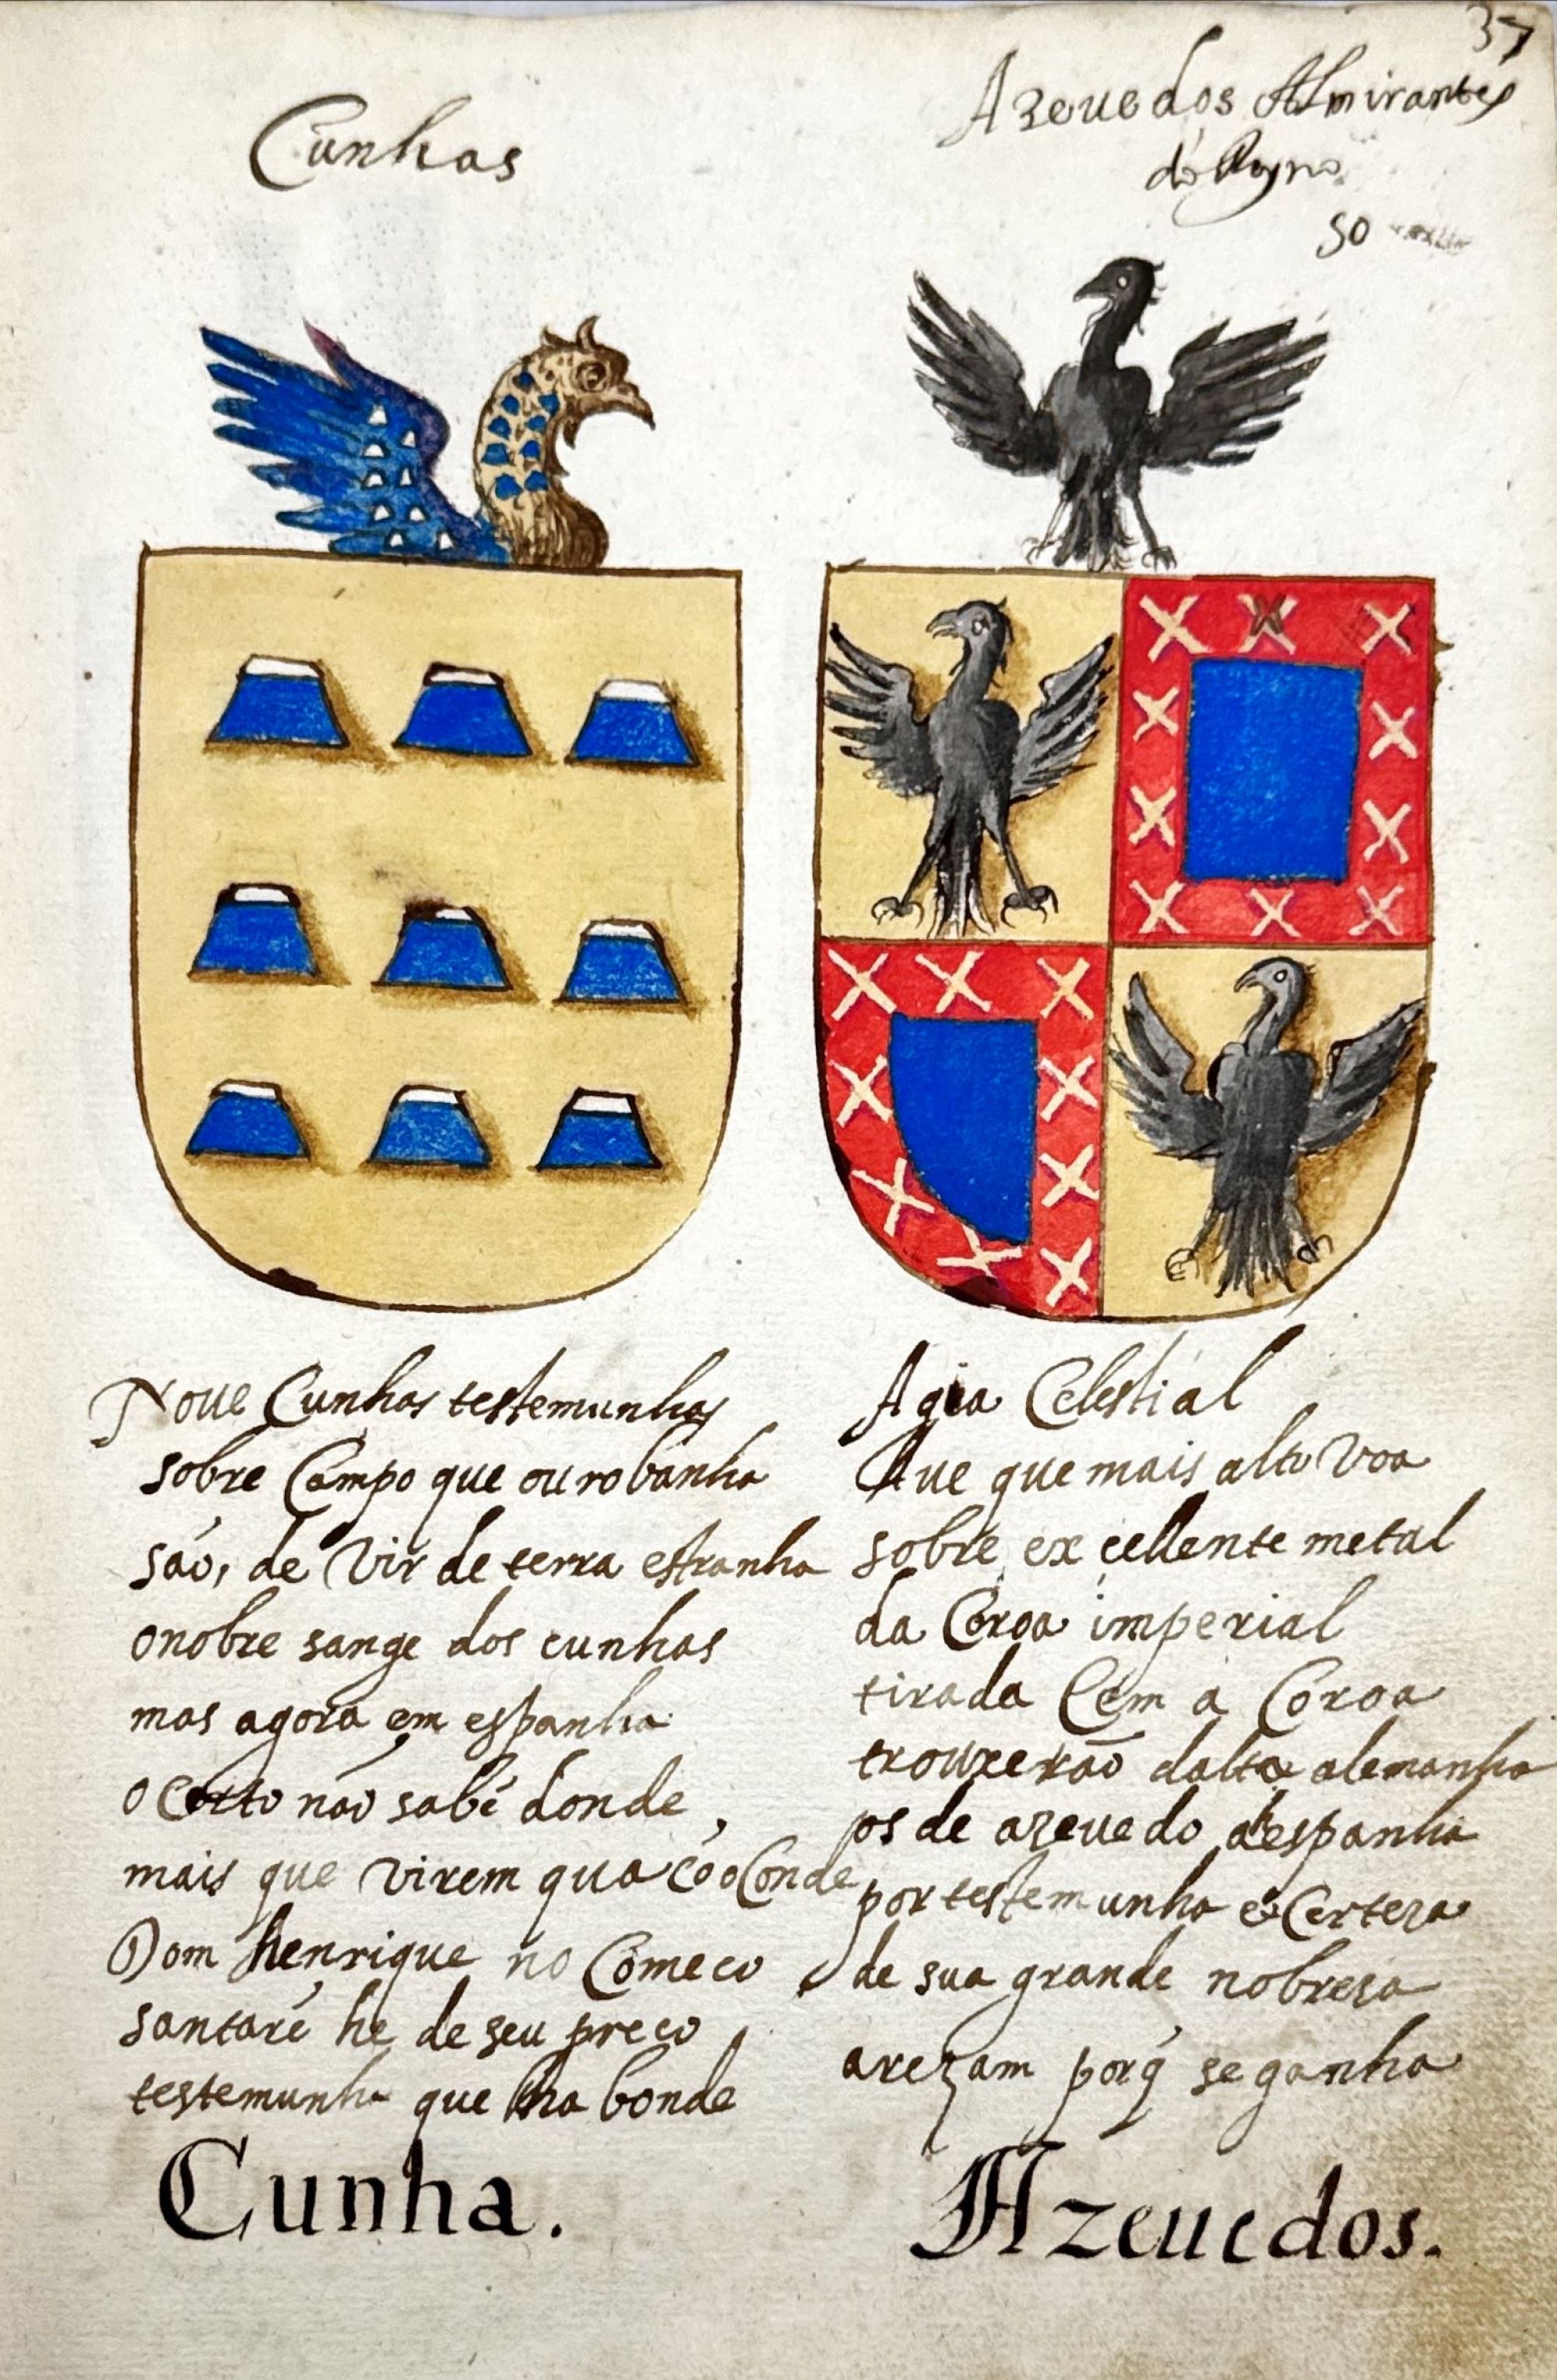 37
Cunhas
Azeuedos Almirantes
do Reyno
50
Noue Cunhas testemunhas
sobre Campo que ouro banha
são, de vir de terra estranha
o nobre sange dos cunhas
mas agora em espanha
o Certo não sabẽ donde,
mais que virem qua cõ o Conde
Dom henrique no Comeco
santarẽ he de seu preco
testemunha que ha bonde
Cunha.
Agia Celestial
Aue que mais alto voa
sobre excellente metal
da Coroa imperial
tirada Cem a Coroa
trouxerão dalta alemanha
os de azeuedo a espanha
por testemunha e Certeza
de sua grande nobreza
arezam porq̃ se ganha
Azeuedos.